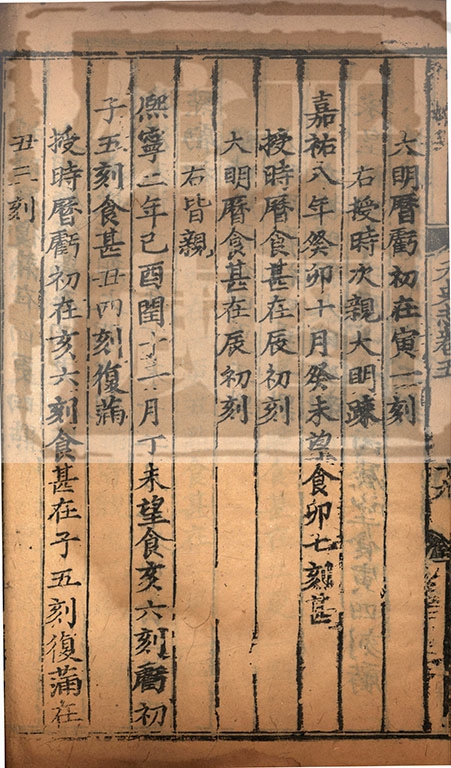 史志卷五
大明曆虧初在寅二刻
右授時次親大明疎
嘉祐八年癸卯十月癸未望食卯七刻甚
授時曆食甚在辰初刻
大明曆食甚在辰初刻
右皆親
熙寧二年己酉閏十一月丁未望食亥六刻虧初
子五刻食甚丑四刻復滿
授時曆虧初在亥六刻食甚在子五刻復滿在
丑三刻